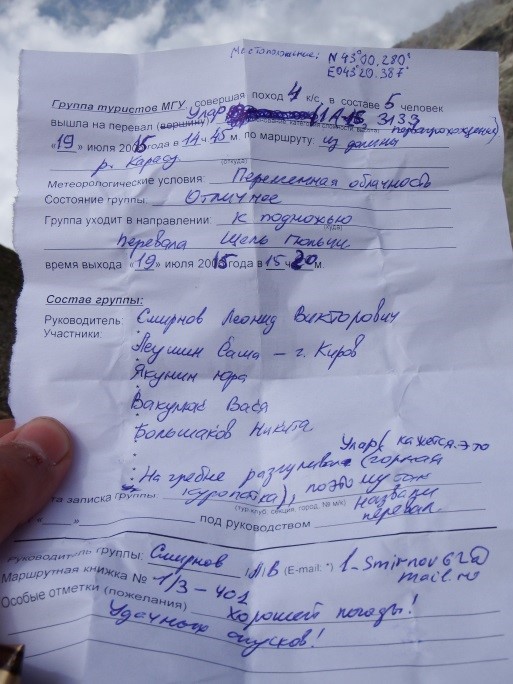 Местоположение: N43°00.280'
E043°20.387'
Группа туристов МГУ, совершая поход 4 к/с, в составе 5 человек
вышла на перевал (вершину) Улар 1А-1Б, 3133
первопрохождение)
«19» июля 2015 года в 14 ч 45 м. по маршруту: из долины
р. Карасу
(откуда)
Метеорологические условия: Переменная облачность
Состояние группы: Отличное
Группа уходит в направлении: К подножью
(куда)
перевала Щель Гюльчи
время выхода «19» июля 2015 года в 15 ч 20 м.
Состав группы:
Руководитель: Смирнов Леонид Викторович
Участники:
Леушин Саша – г. Киров
Якунин Юра
Вакулюк Вася
Большаков Никита
Улар( кажется это
На гребне разгуливал (горная
та записка группы: куропатка), поэтому так
(тур клуб, секция, город, № м/к)
назвали
« » под руководством перевал.
Руководитель группы: Смирнов ЛВ (E-mail: *) l-smirnov62@
mail.ru
Маршрутная книжка № 1/3-401
Особые отметки (пожелания) Хорошей погоды!
Удачных спусков!